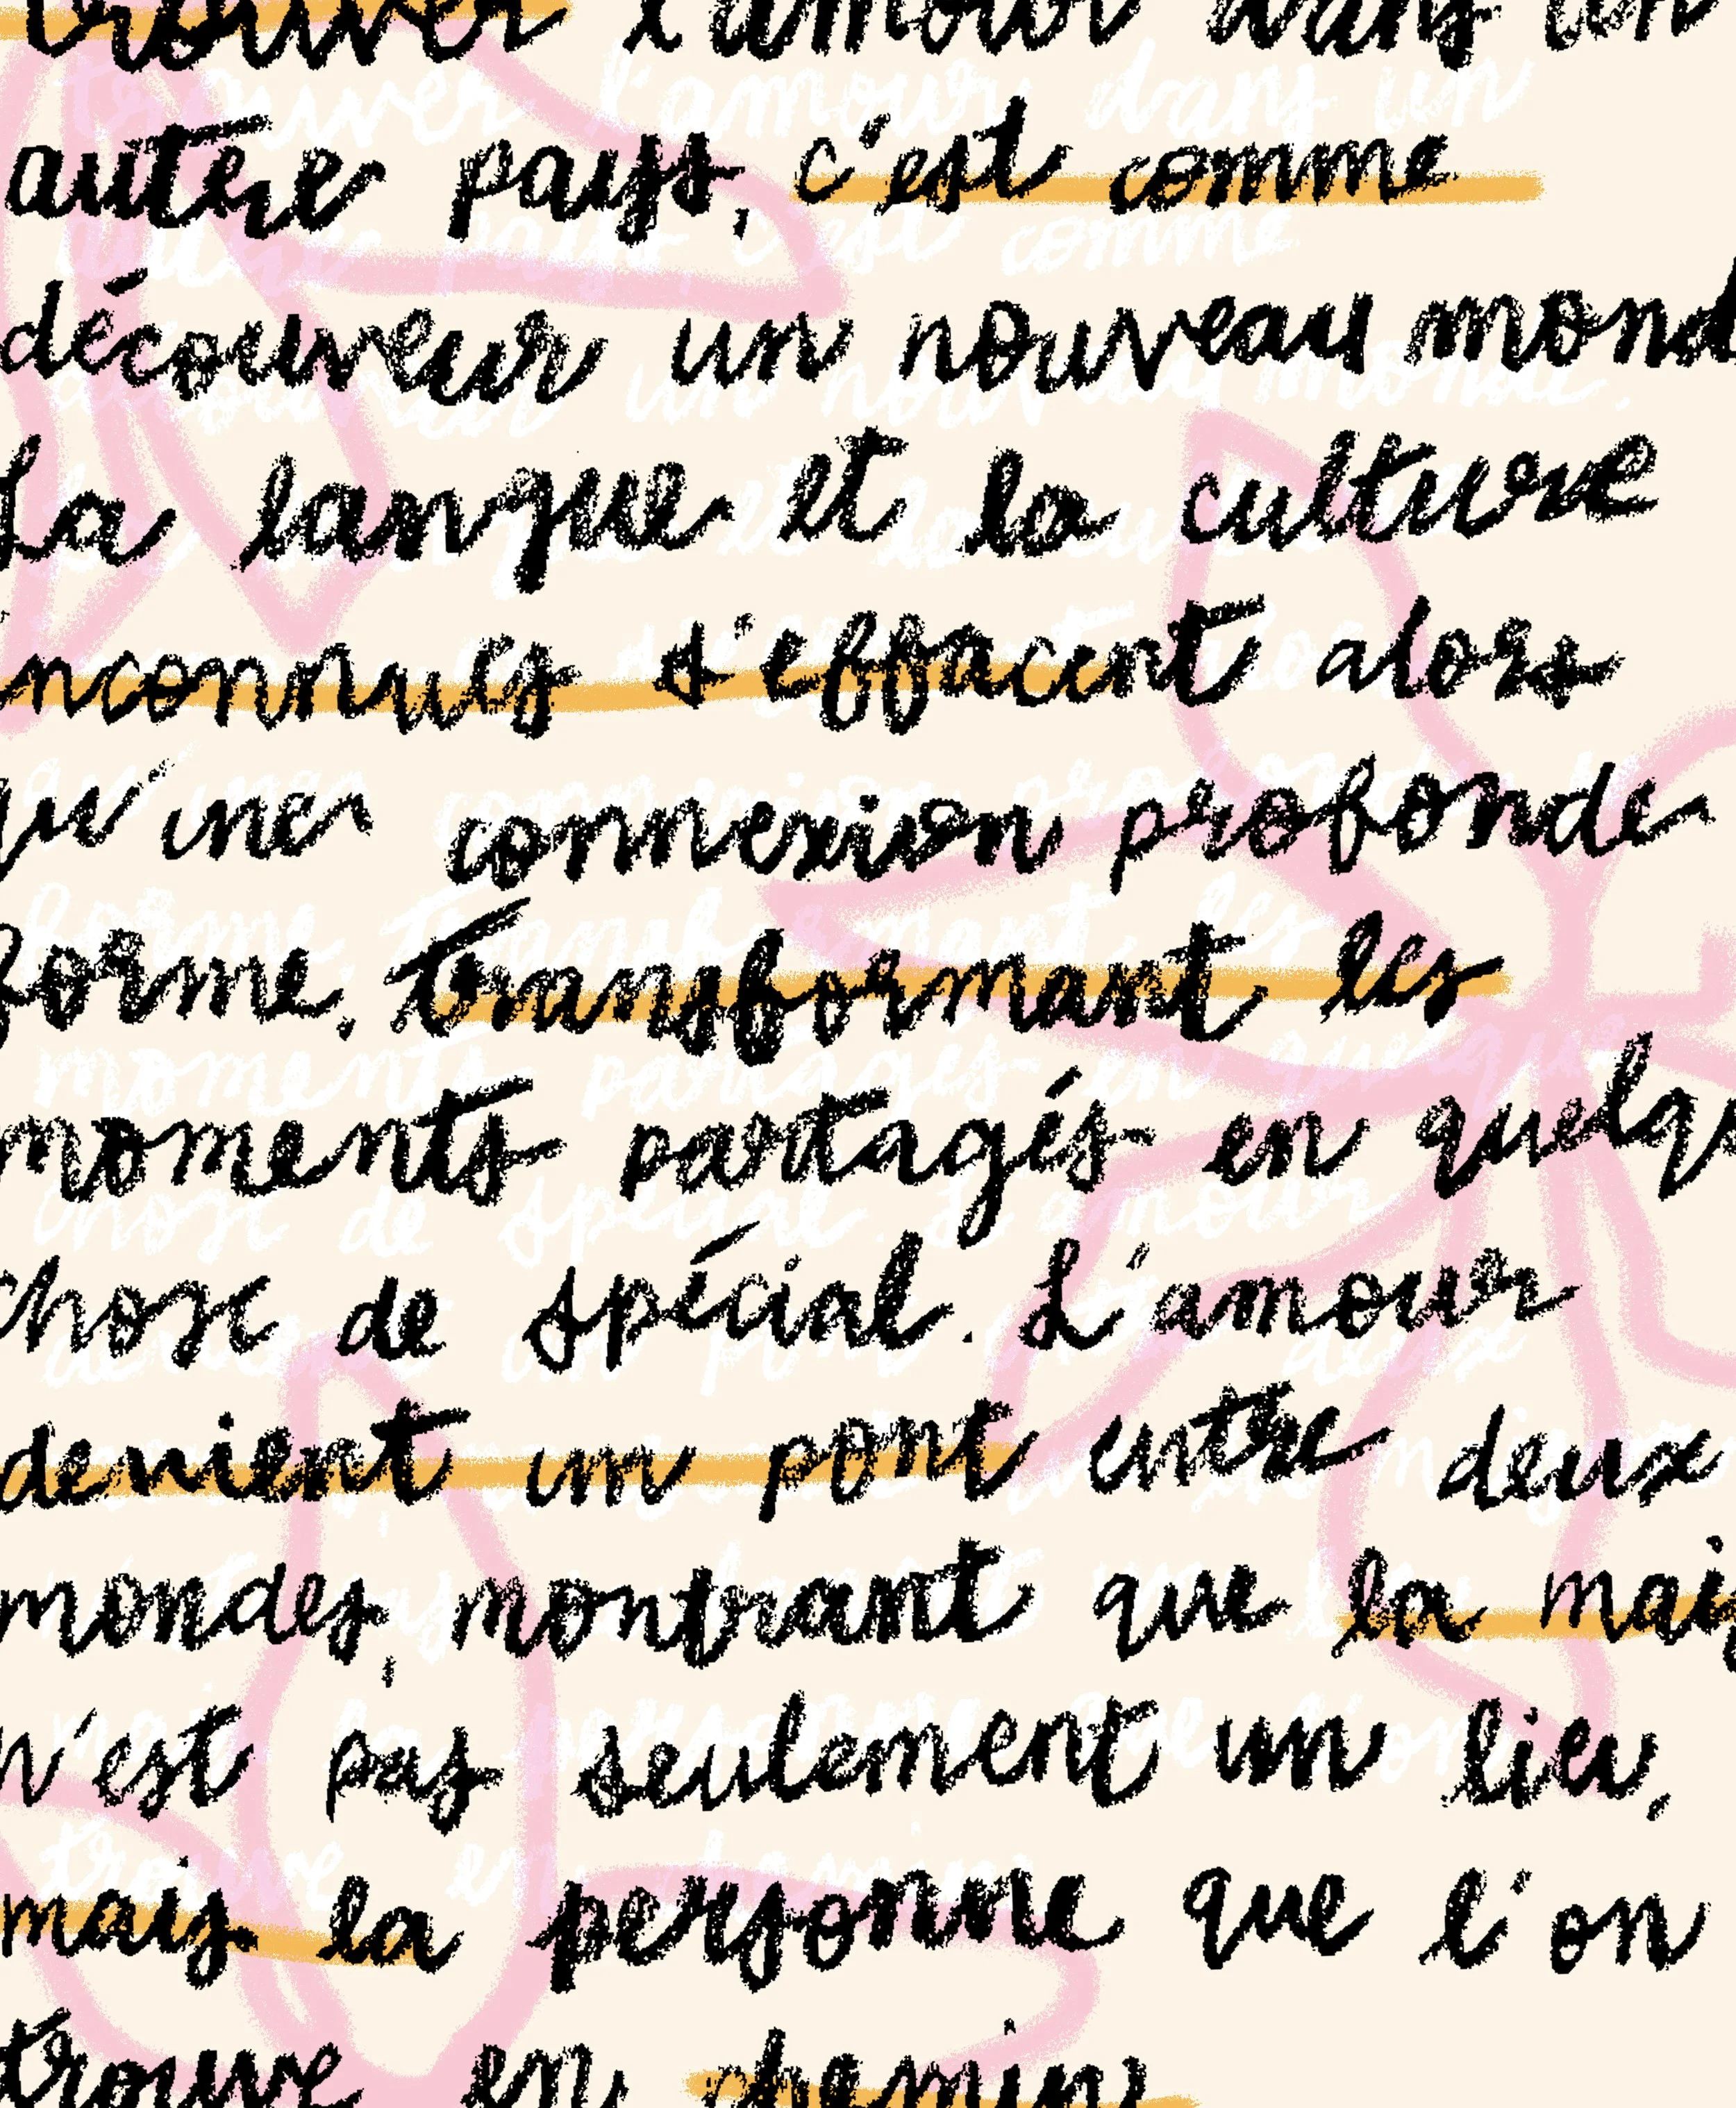 trouver l'amour dans un
autre pays, c'est comme
découvrir un nouveau mond
La langue et la culture
inconnues s'effacent alors
qu'une connexion profonde
forme, transformant les
moments partagés en quelqu
chose de spécial. L'amour
devient un pont entre deux
mondes, montrant que la mais
n'est pas seulement un lieu,
mais la personne que l'on
trouve en chemin